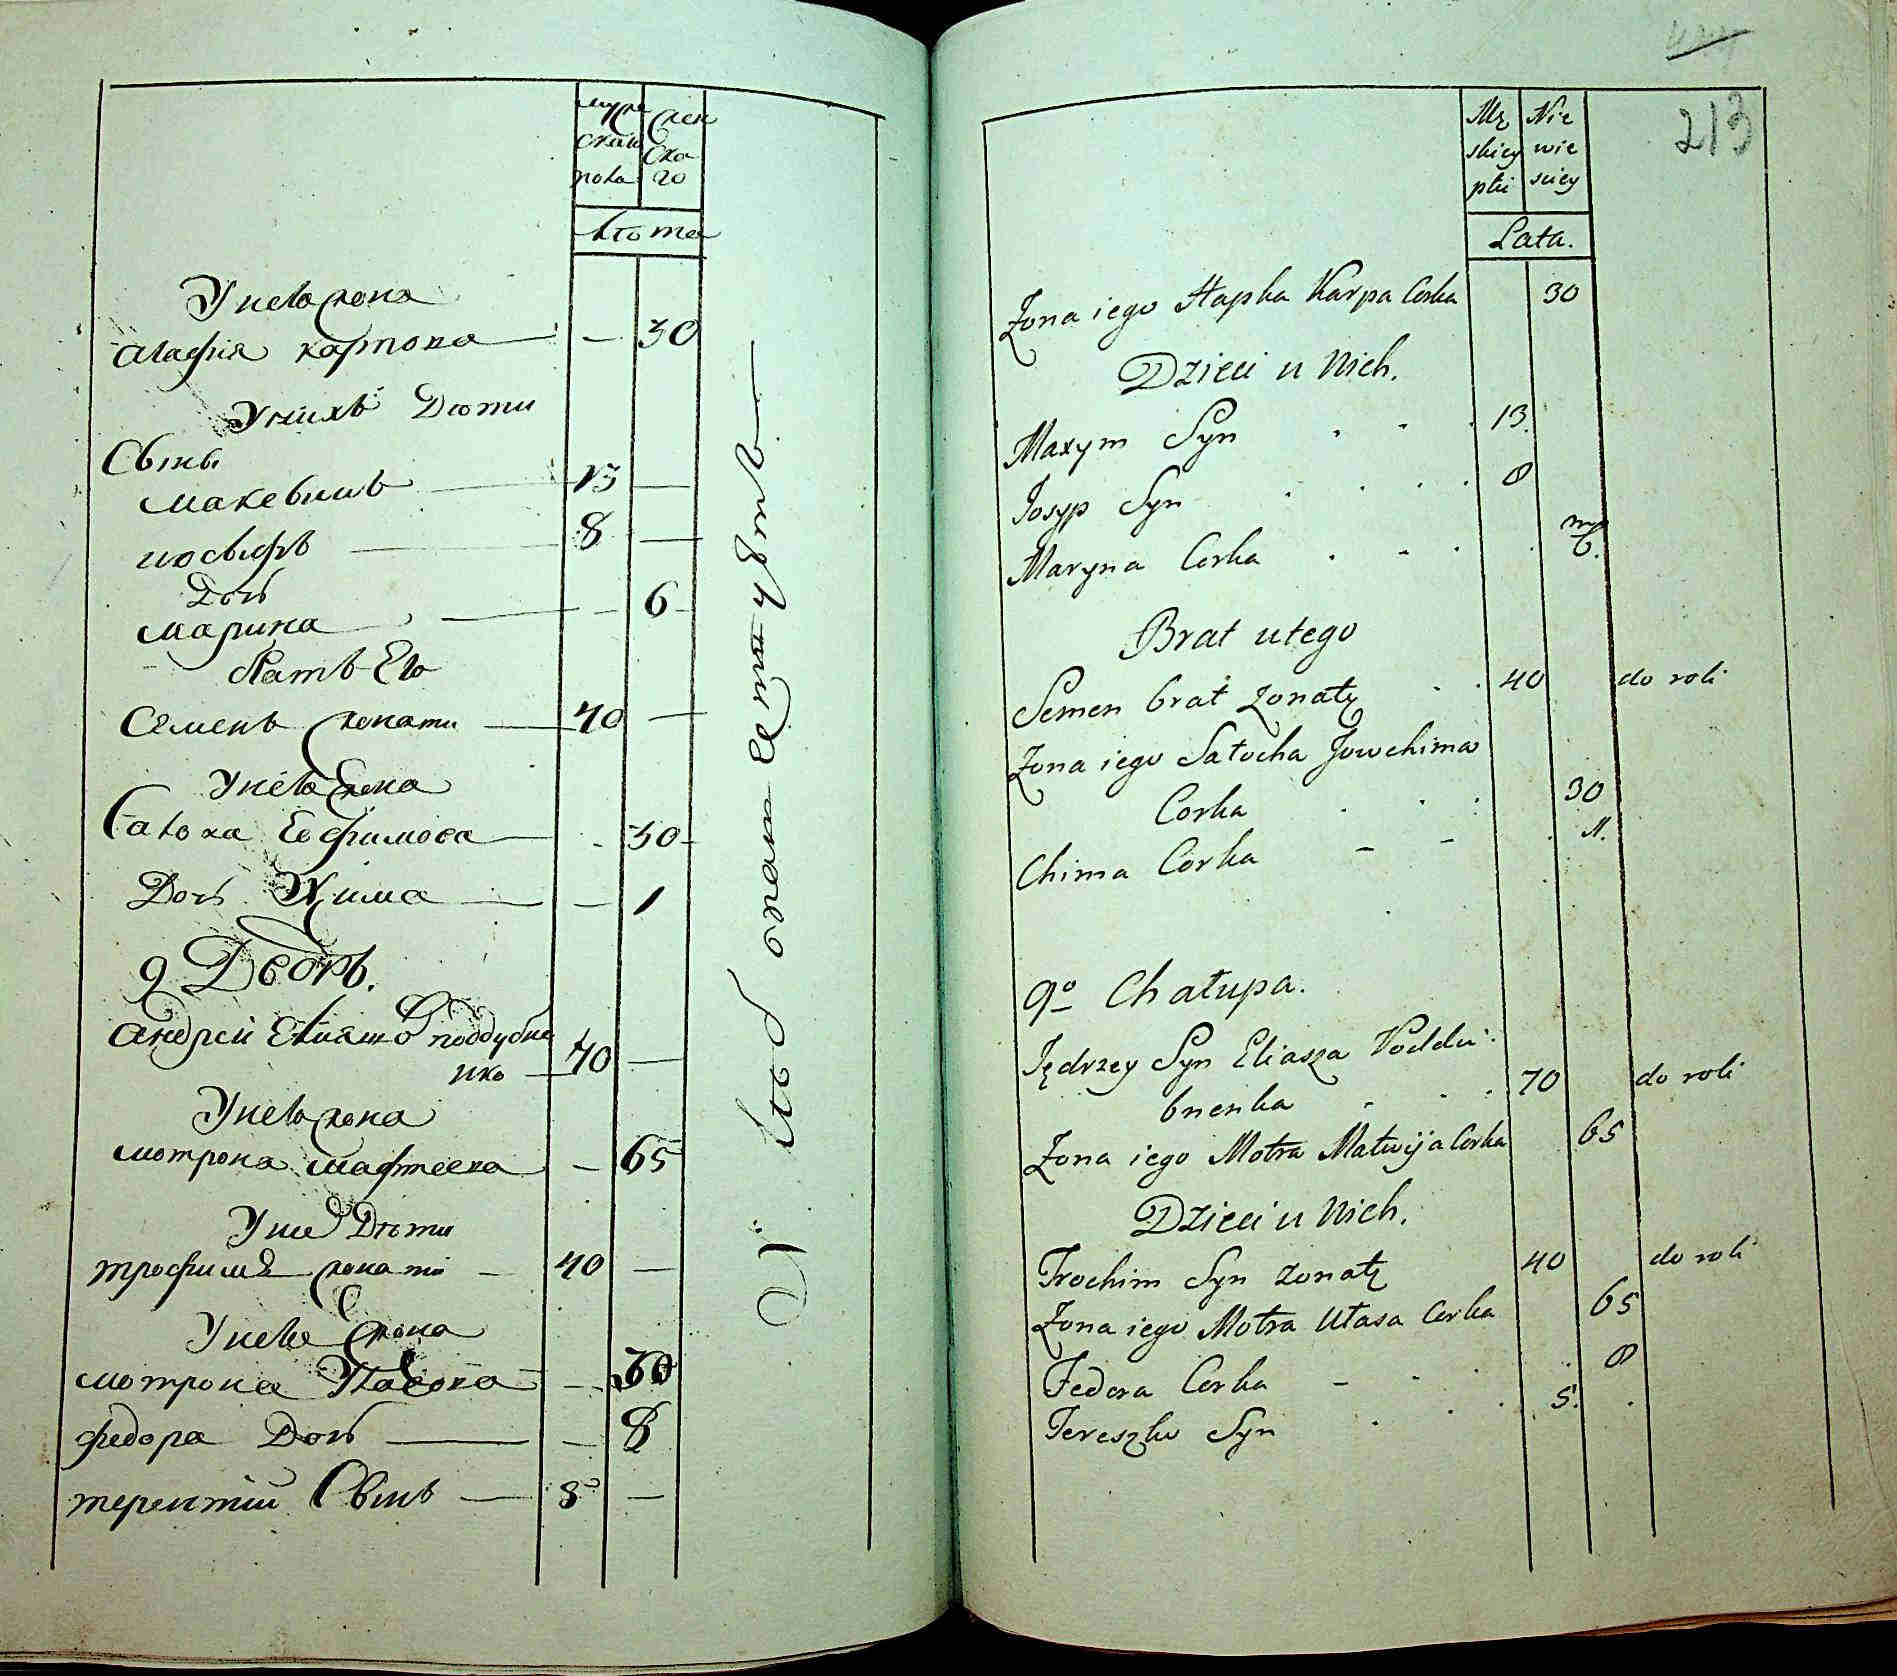 муже
скаго
пола
жен
ска
го
лѣта
У него жена
Агафия карпова — — 30
У нихъ Дѣти
Сыны
Максымъ — 13 —
иосыфъ — 8 —
Дочь
марина — — 6
Братъ Его
Семенъ женатъ — 40 —
У него жена
Евфимова — - 30
Дочь Хима — — 1
9 Дворъ.
Андрей Елияшов поддубне
нко — 70 —
У него жена
мотрона мафтеева — 65
У них Дѣти
трофимъ женатъ — 40 —
У него жена
мотрона Власова — 30
федора Дочь — — 8
терентий Сынъ — 5 —
213
Mę
skiey
płci
Nie
wie
sciey
Lata.
Zona iego Hapka Karpa Corka 30
Dzieci u Nich.
Maxym Syn . . . 13.
Josyp Syn . . . . 8
Maryna Corka . - . . 6.
Brat u tego
Semen brat zonaty . . 40 do roli
Zona iego Sałocha Jowchima
Corka . . . 30
Chima Corka - - . 1.
9o Chałupa.
Jędrzey Syn Eliasza Poddu
bnenka . . . 70 do roli
Zona iego Motra Matwija Corka 65
Dzieci u Nich.
Trochim Syn zonaty 40 do roli
Zona iego Motra Ułasa Corka 65
Fedora Corka - - . . 8
Tereszko Syn . . . 5. .